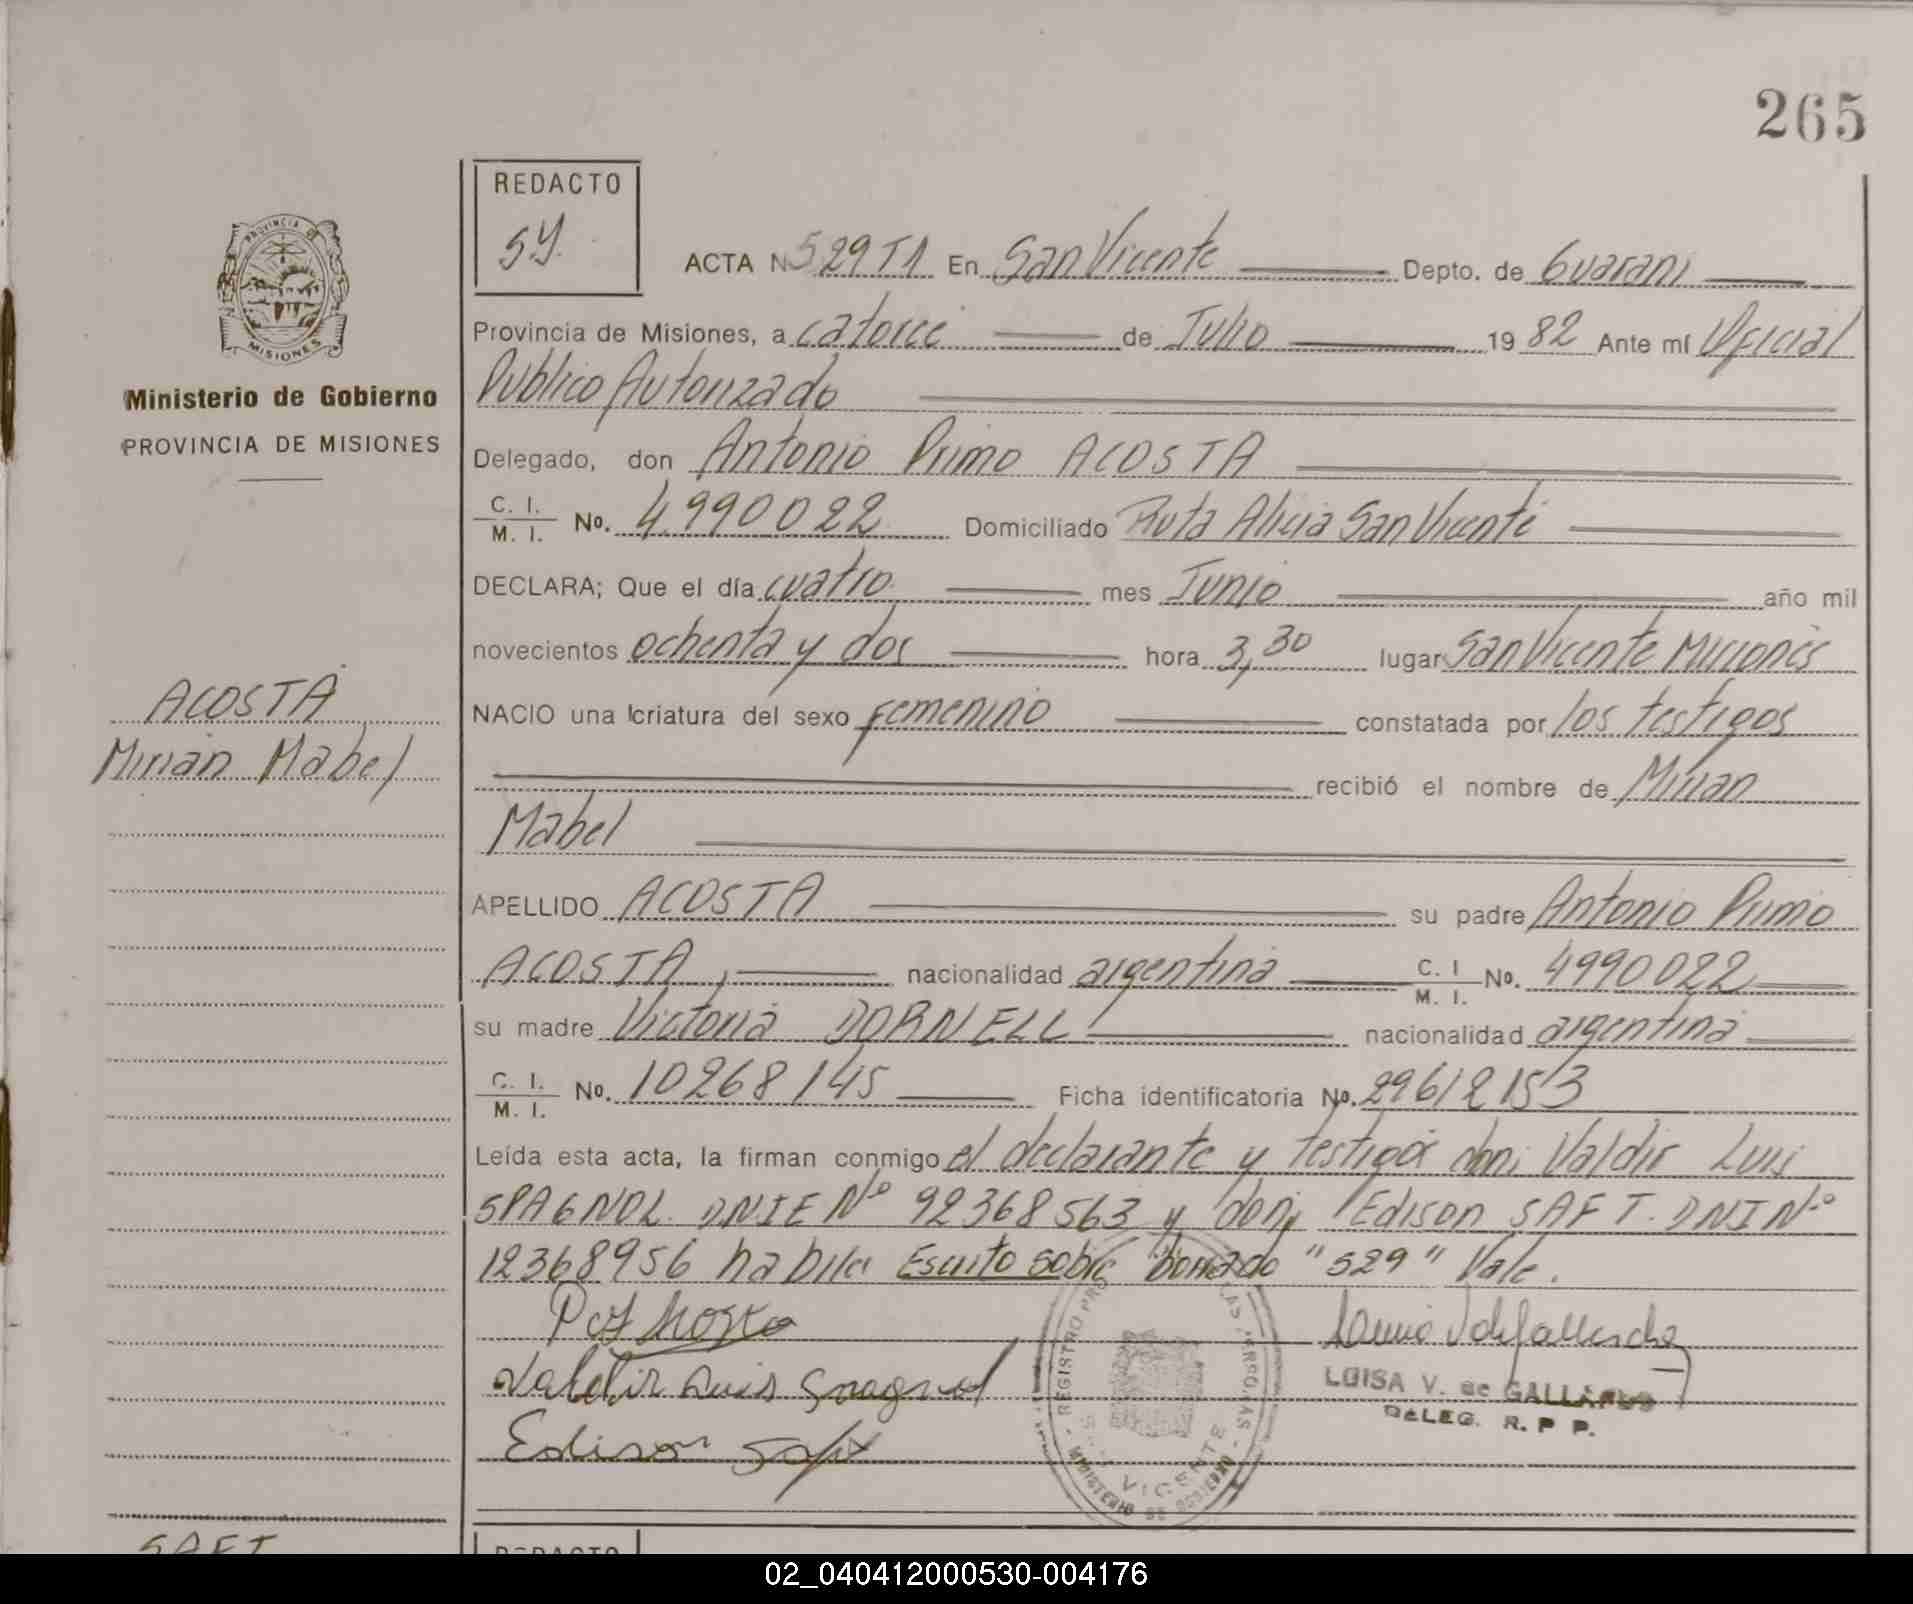 265
REDACTO
SY.
PROVINCIA DE
MISIONES
Ministerio de Gobierno
PROVINCIA DE MISIONES
ACTA N 529 T1 En San Vicente Depto. de Guarani
Provincia de Misiones, a catorce de Julio 1982 Ante mí Oficial
Publico Autorizado
Delegado, don Antonio Primo ACOSTA
C. I. / M. I. No. 4.990022 Domiciliado Ruta Alicia San Vicente
DECLARA; Que el día cuatro mes Junio año mil
novecientos ochenta y dos hora 3,30 lugar San Vicente Misiones
ACOSTA
Mirian Mabel
NACIO una criatura del sexo femenino constatada por los testigos
recibió el nombre de Mirian
Mabel
APELLIDO ACOSTA su padre Antonio Primo
ACOSTA, nacionalidad argentina C. I / M. I. No. 4990022
su madre Victoria DORNELL nacionalidad argentina
C. I. / M. I. No. 10268145 Ficha identificatoria No. 29612153
Leída esta acta, la firman conmigo el declarante y testigos don; Valdir Luis
SPAGNOL DNIE Nº 92368563 y don; Edison SAFT. DNI Nº
12368956 habiles Escrito sobre borrado "529" Vale.
Valdir Luis Spagnol
Edison Saft
REGISTRO PRO LAS PERSONAS
SAN VICENTE
MINISTERIO DE GOBIERNO
LUISA V. de GALLARDO
DELEG. R. P P.
SAFT
REDACTO
02_040412000530-004176